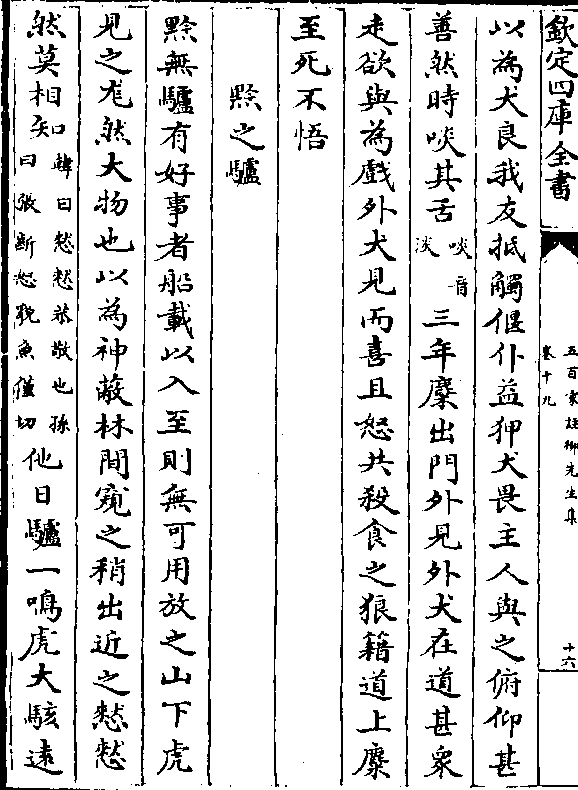 欽定四庫全書
五百家註柳先生集
卷十九
十六
以為犬良我友抵觸偃仆益狎犬畏主人與之俯仰甚
善然時啖其舌啖音淡三年麋出門外見外犬在道甚衆
走欲與為戲外犬見而喜且怒共殺食之狼籍道上麋
至死不悟
黔之驢
黔無驢有好事者船載以入至則無可用放之山下虎
見之尨然大物也以為神蔽林間窺之稍出近之憖憖
然莫相知韓曰憖憖恭敬也孫曰張斷怒貌魚僅切他日驢一鳴虎大駭逺